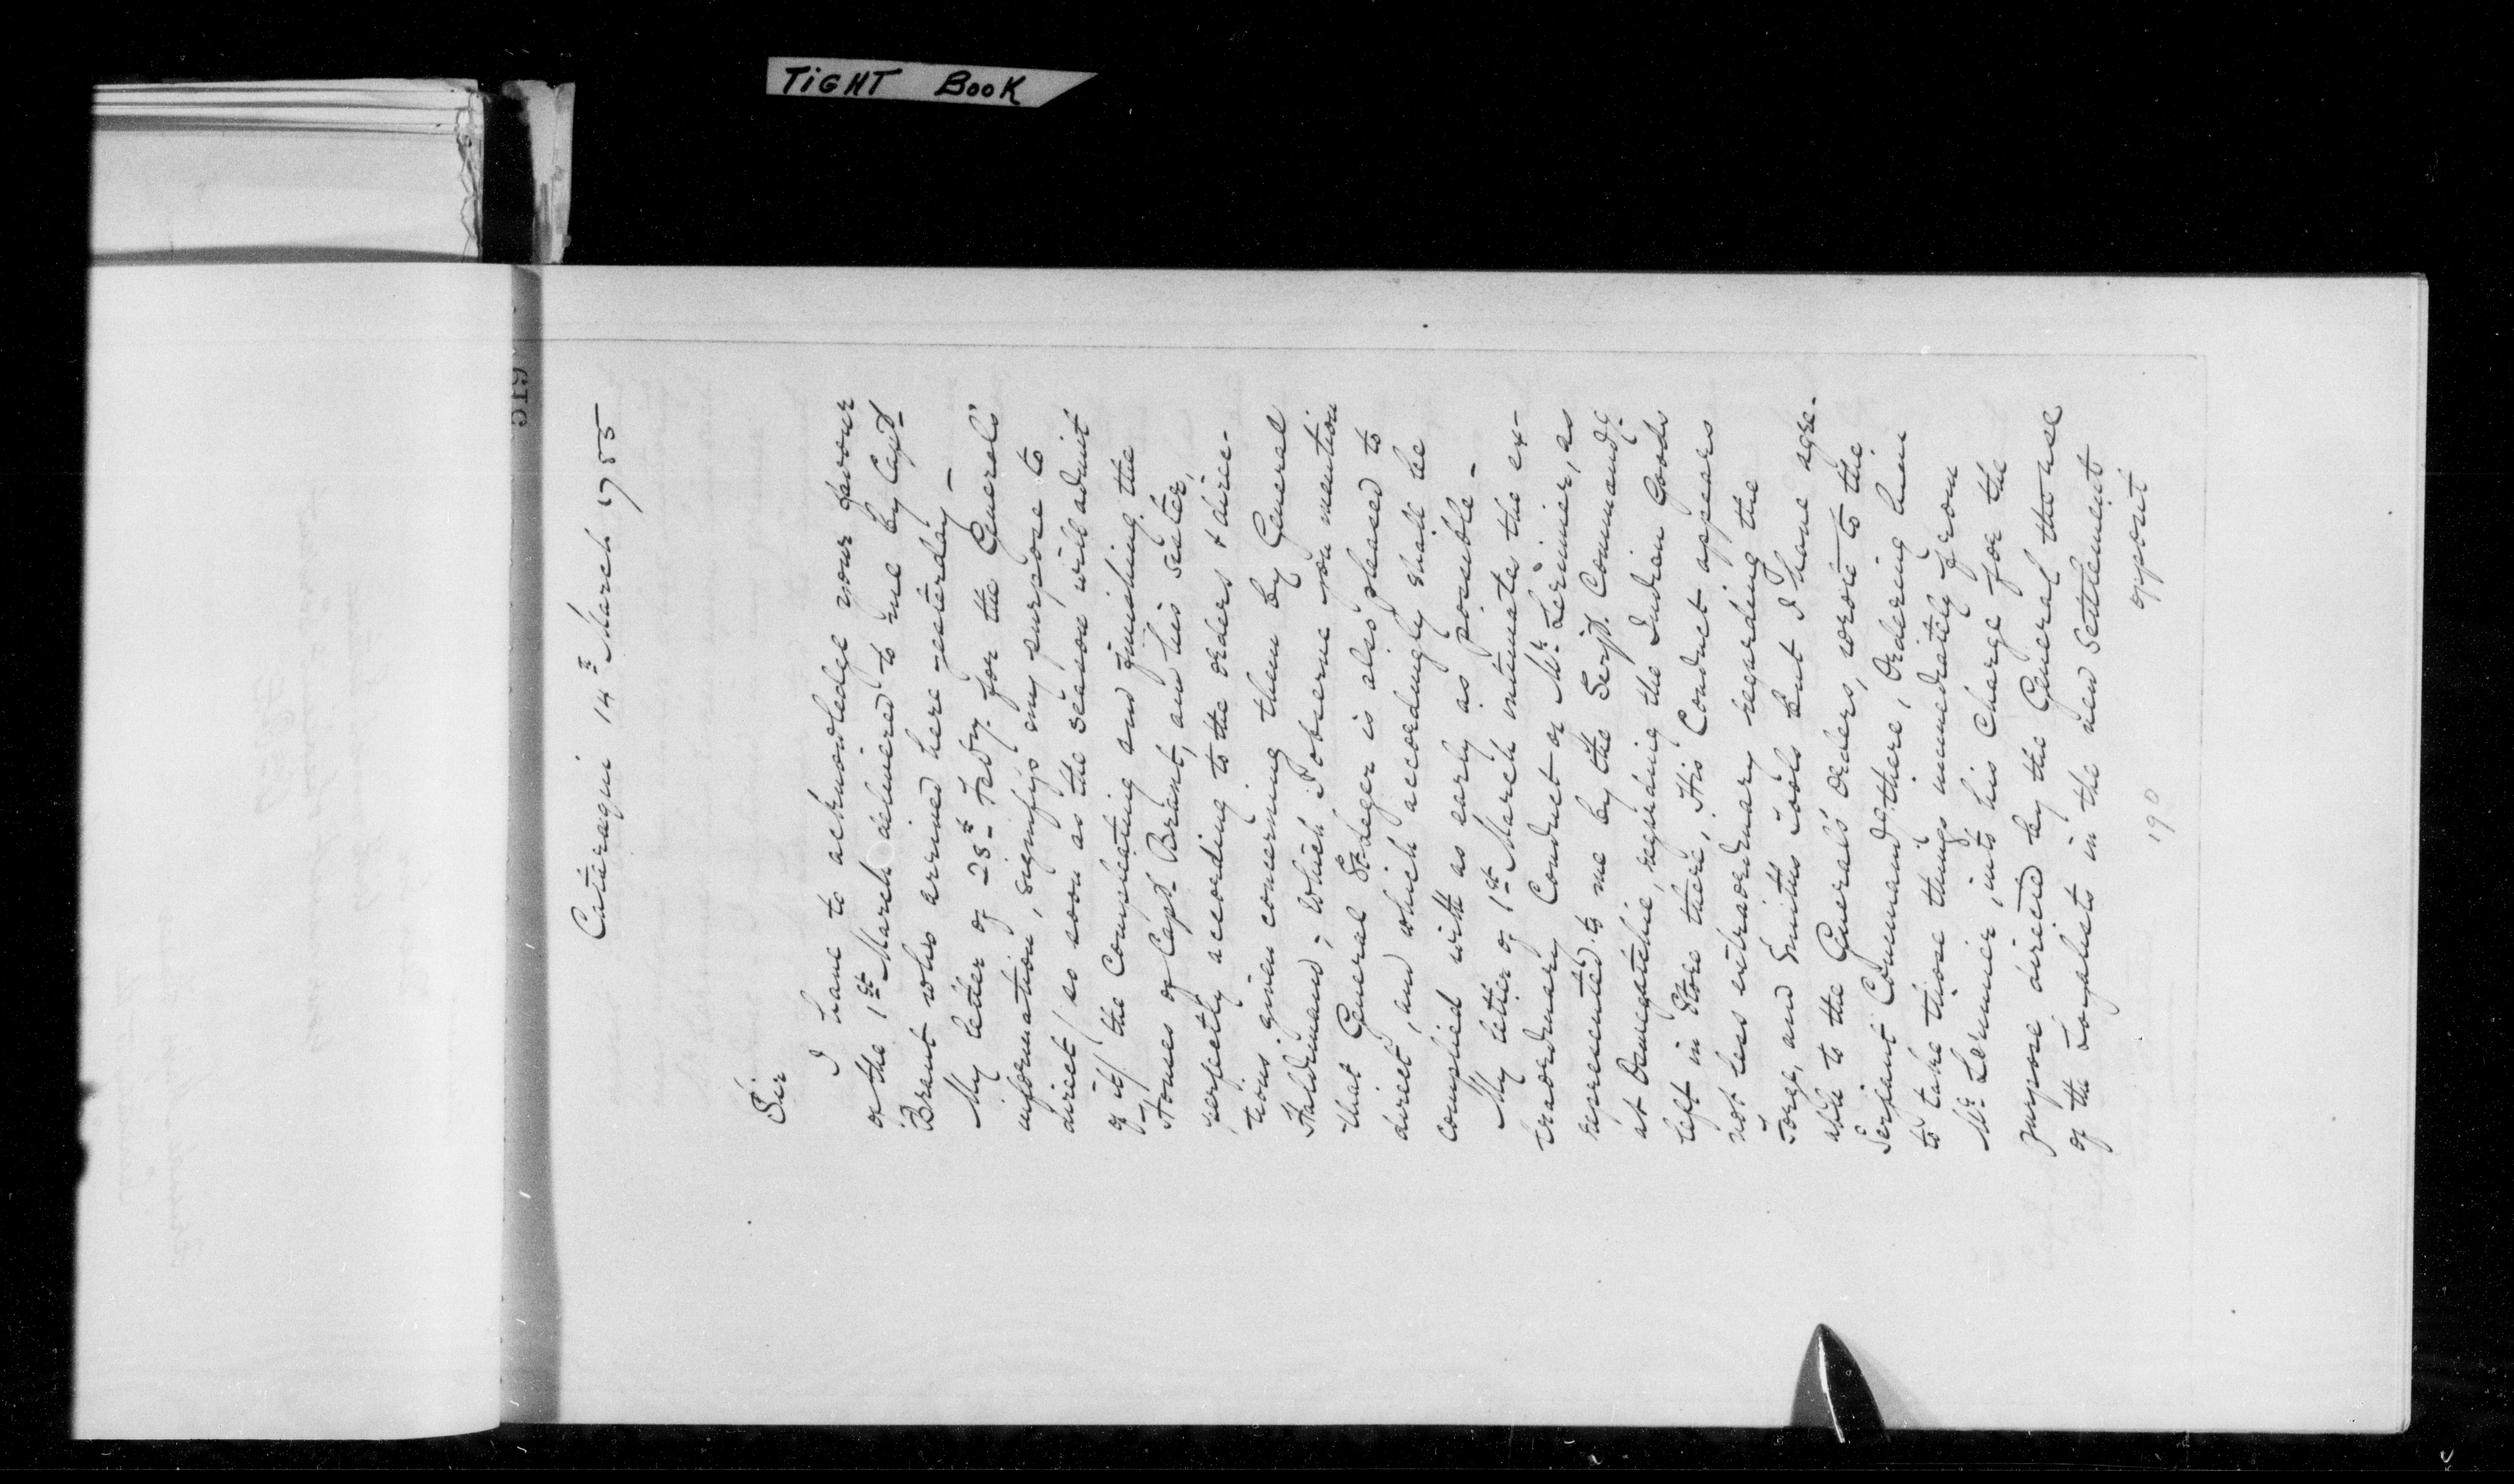 TIGHT BOOK
519
Cataraqui 14th March 1785
Sir
I have to acknowledge your favour
of the 1st March delivered to me by Capt
Brant who arrived here yesterday –
My letter of 28th Feby. for the Generals'
information, signifys my purpose to
direct / so soon as the season will admit
of it / the Compleating and finishing the
Homes of Capt Brant, and his sister,
perfectly according to the orders & direc-
tions given concerning them by General
Haldimand, which I observe you mention
that General St. Leger is also pleased to
direct, and which accordingly shall be
complied with as early as possible –
My letter of 1st March intimates the ex-
traordinary Conduct of Mr. Lorimier, as
represented to me by the Serjt. Commandg.
at Oswegatchie, regarding the Indian Goods
left in Store there, His Conduct appears
not less extraordinary regarding the
Forge, and Smiths Tools but I have agre-
able to the Generals' Orders, wrote to the
Serjeant Commandg. there, Ordering him
to take those things immediately from
Mr. Lorimier, into his Charge for the
purpose directed by the General the use
of the Loyalists in the new Settlement
oppont
190